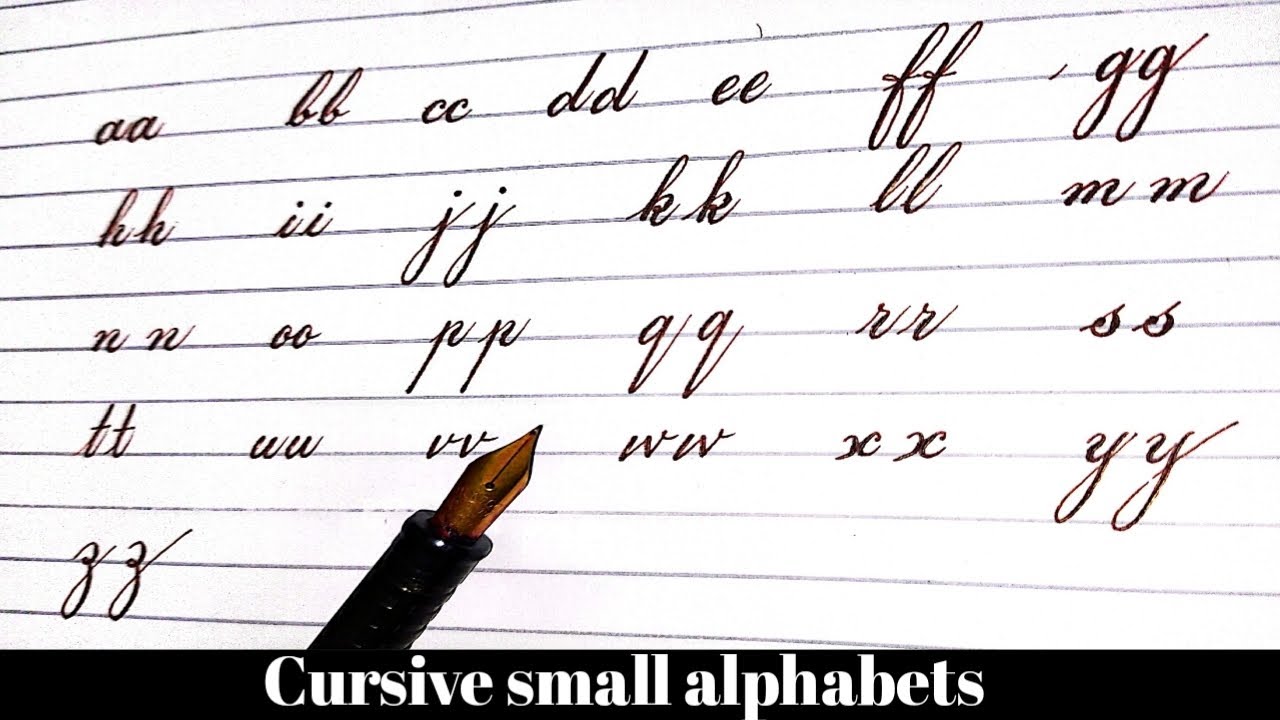 aa bb cc dd ee ff gg
hh ii jj kk ll mm
nn oo pp qq rr ss
tt uu vv ww xx yy
zz
Cursive small alphabets